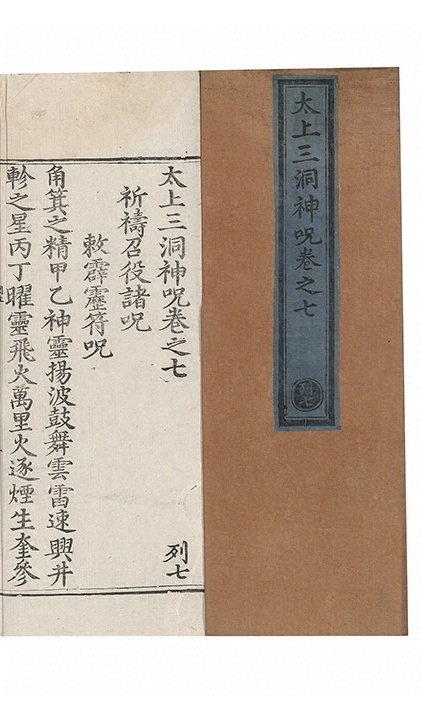 太上三洞神呪卷之七
列七
太上三洞神呪卷之七
列七
祈禱召役諸呪
敕霹靂符呪
角箕之精甲乙神靈揚波鼓舞雲雷速興井
軫之星丙丁曜靈飛火萬里火逐煙生奎參